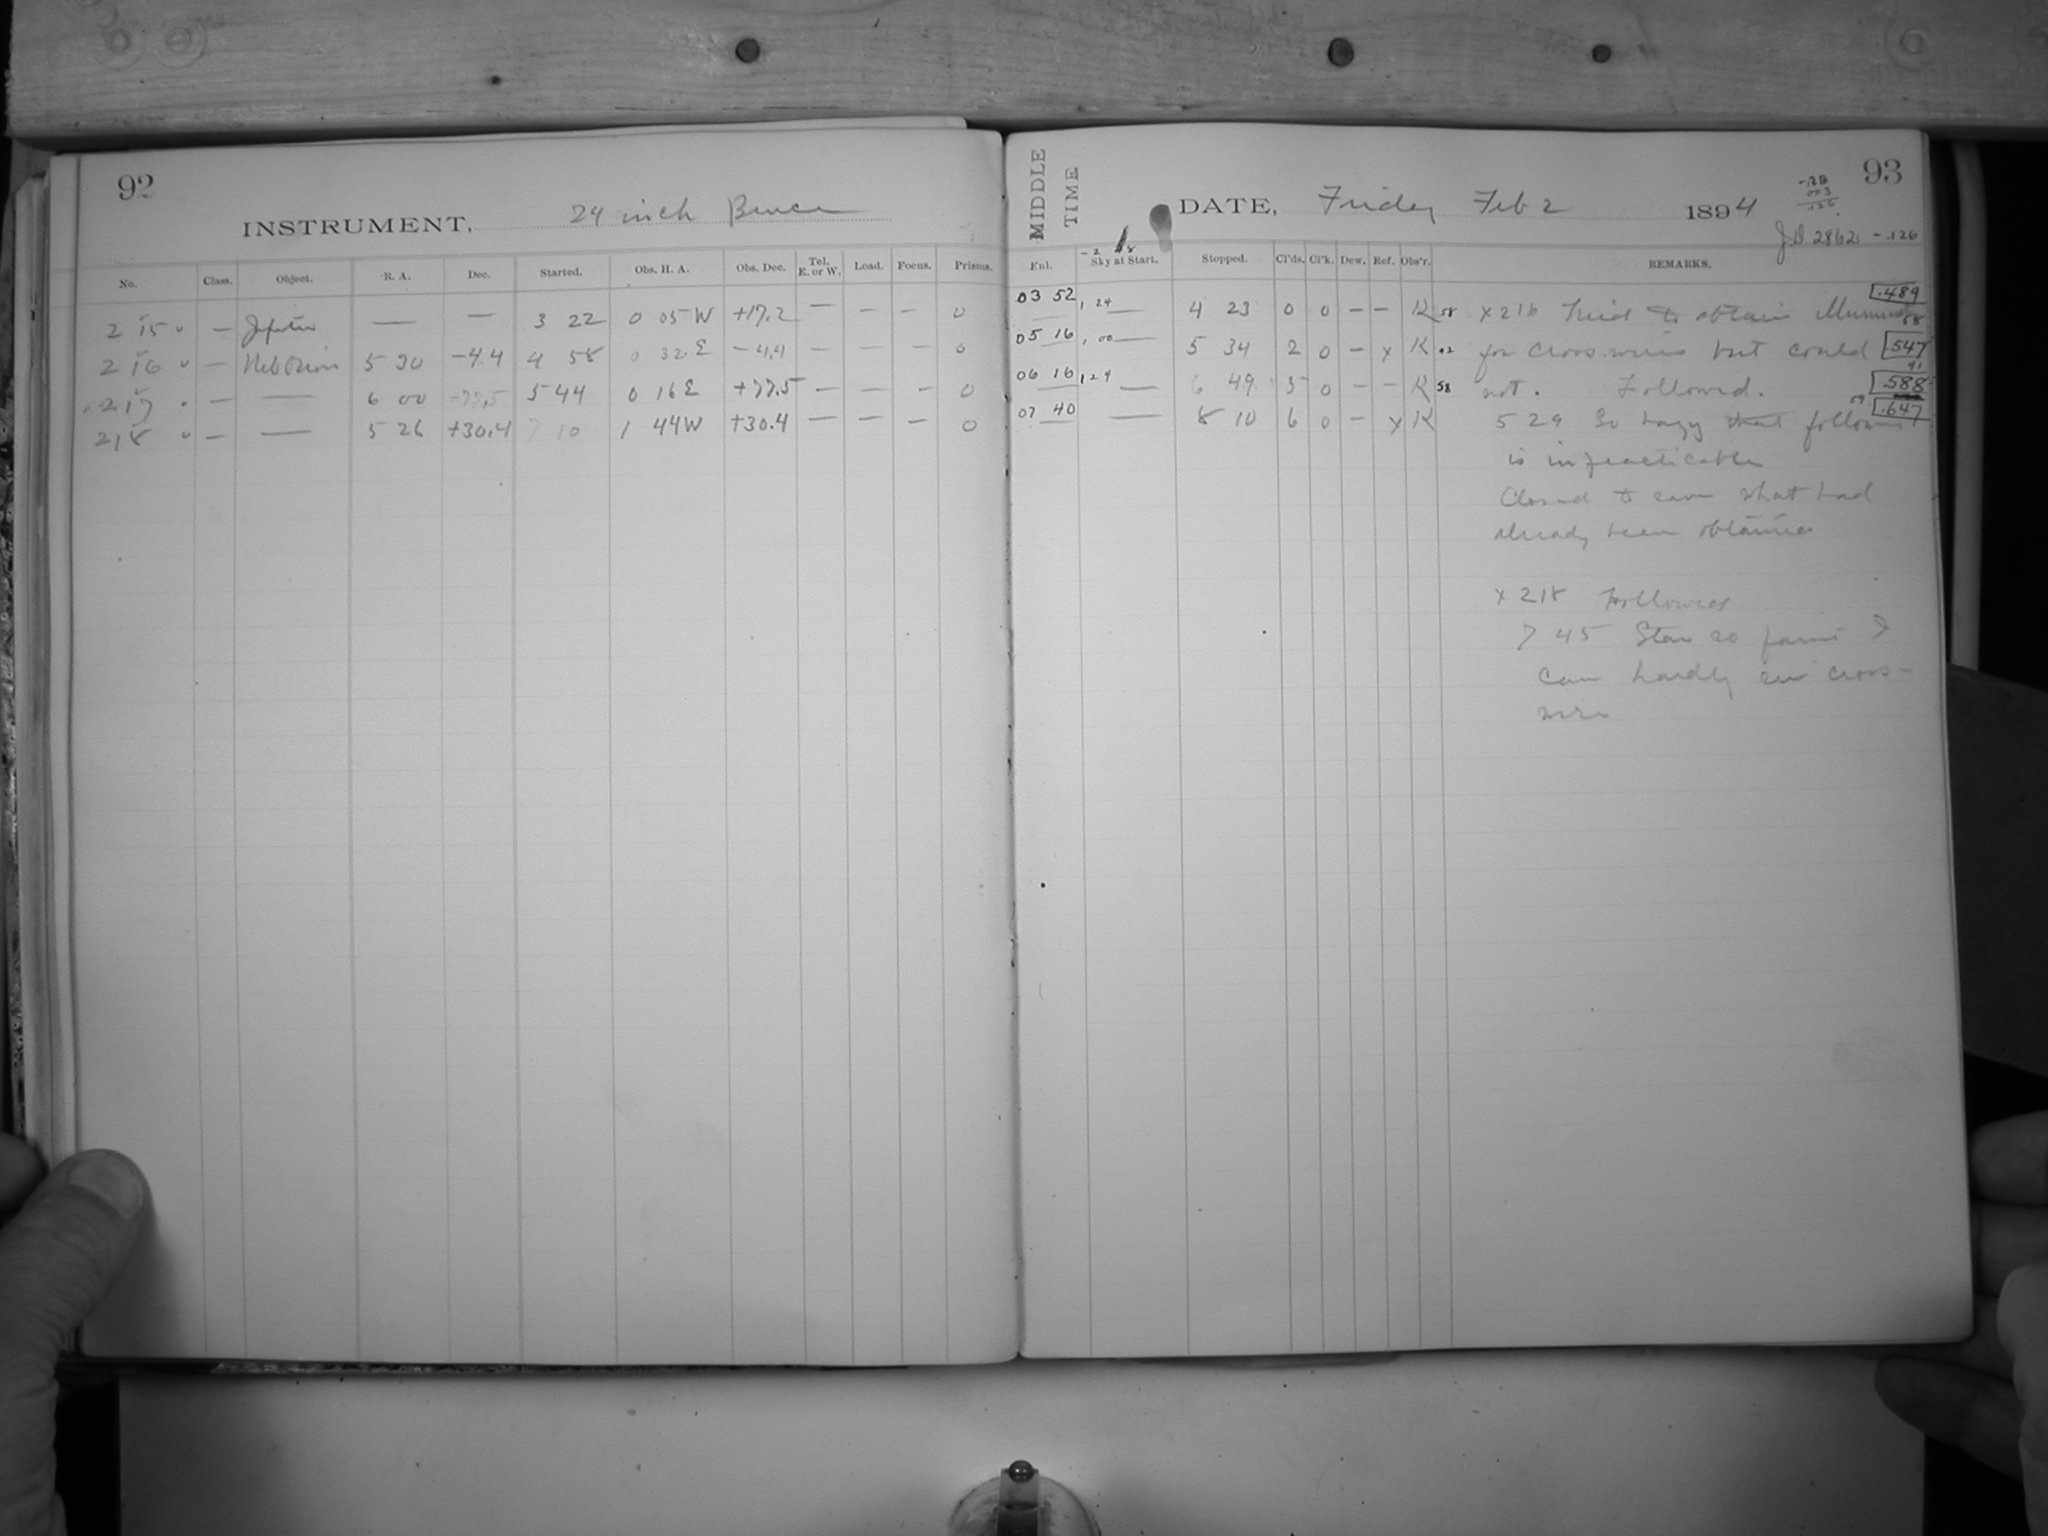 92
INSTRUMENT, 24 inch Bruce
No. Class. Object. R. A. Dec. Started. Obs. H. A. Obs. Dec. Tel. E. or W. Load. Focus. Prisms.
215 v — Jupiter — — 3 22 0 05 W +17.2 — — — 0
216 v — Neb Orion 5 30 −4.4 4 58 0 32 E −4.4 — — — 0
217 — — 6 00 5 44 0 16 E +77.5 — — — 0
218 v — — 5 26 +30.4 7 10 1 44 W +30.4 — — — 0
MIDDLE TIME
DATE, Friday Feb 2 1894
93
J.D. 2862 −.126
Enl. Sky at Start. Stopped. Cl'ds. Cl'k. Dew. Ref. Obs'r. REMARKS.
03 52 , 24 — 4 23 0 0 — — K 58 x 216 Tried to obtain illumin .489
05 16 , 00 — 5 34 2 0 — x K 42 for cross-wires but could .547
06 16 , 24 — 6 49 5 0 — — K 58 not. Followed. .588
07 40 — 8 10 6 0 — x K 5 29 So hazy that following .647
is impracticable
Closed to save what had
already been obtained
x 218 Followed
7 45 Star so faint I
can hardly see cross-
wire